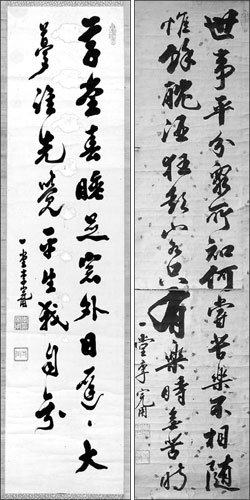 世事平分衆所知何嘗苦樂不相随
惟餘酖酒狂歌客只有樂時無苦時
一堂李完用
草堂春睡足窓外日遲〻大
夢誰先覺平生我自知
一堂李完用